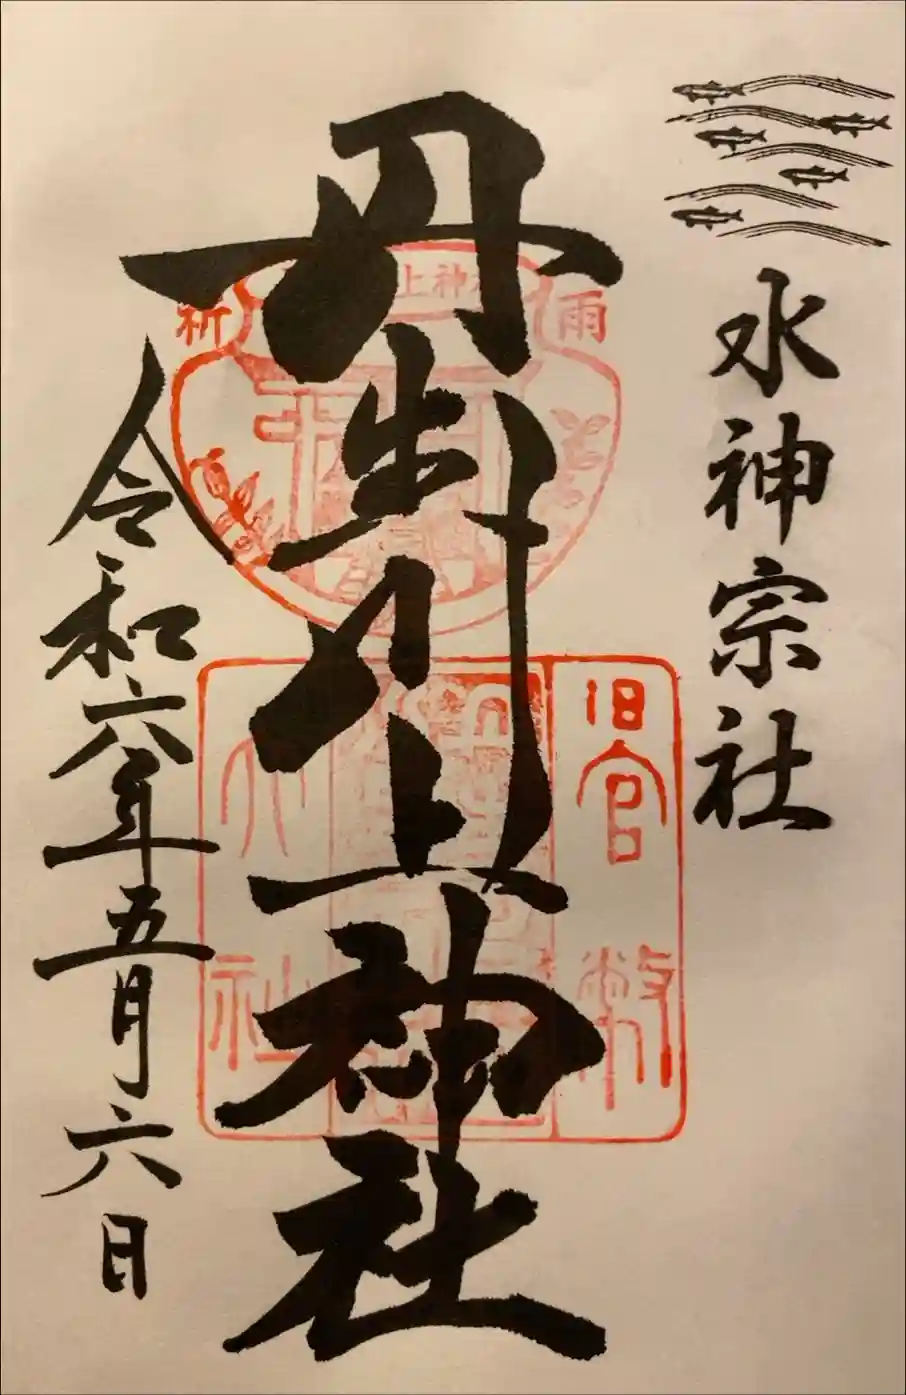 水神宗社
丹生川上神社
令和六年五月六日
祈
雨
上神社
旧官幣
大社